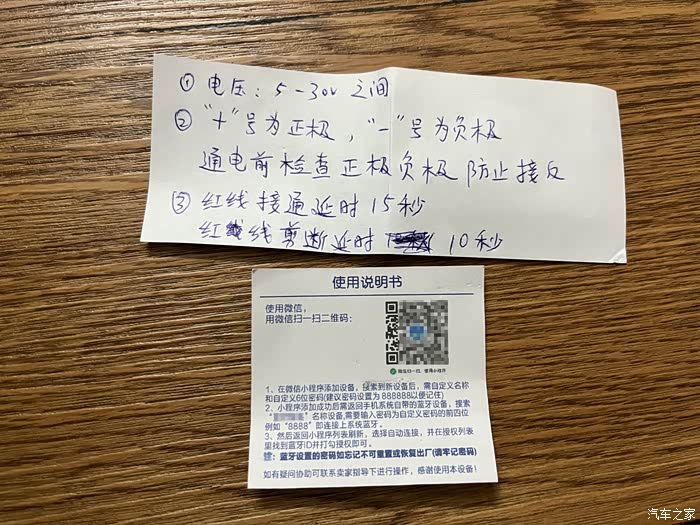 ① 电压：5-30V 之间
② "+"号为正极，"-"号为负极
通电前检查正极负极 防止接反
③ 红线接通延时 15秒
红线剪断延时 10秒
使用说明书
使用微信，
用微信扫一扫二维码：
微信扫一扫，使用小程序
1、在微信小程序添加设备，搜索到新设备后，需自定义名称
和自定义6位密码(建议密码设置为 888888以便记住)
2、小程序添加成功后需返回手机系统自带的蓝牙设备，搜索
“ ”名称设备,需要输入密码为自定义密码的前四位
例如“8888”即连接上系统蓝牙。
3、然后返回小程序列表刷新，选择自动连接，并在授权列表
里找到蓝牙ID并打勾授权即可。
注: 蓝牙设置的密码如忘记不可重置或恢复出厂(请牢记密码)
如有疑问协助可联系卖家指导下进行操作，感谢使用本设备！
汽车之家